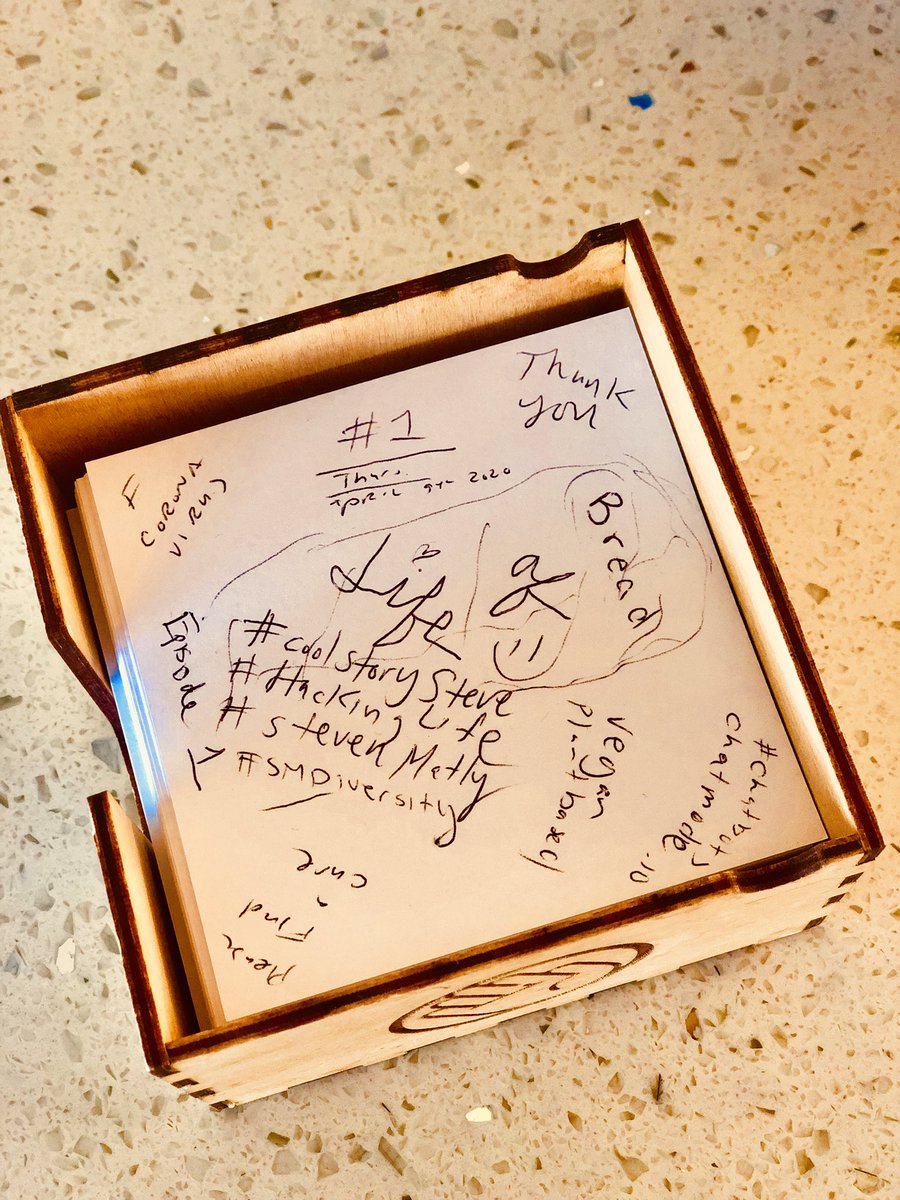 Thank
you
#1
Thurs.
April 9th 2020
F
CORONA
VIRUS
Life
of
Bread
Episode 1
#coolstorySteve
#HackingLife
#stevenMatly
#SMDiversity
vegan
plant based
#chatbots
chatmode.io
Please
Find
cure